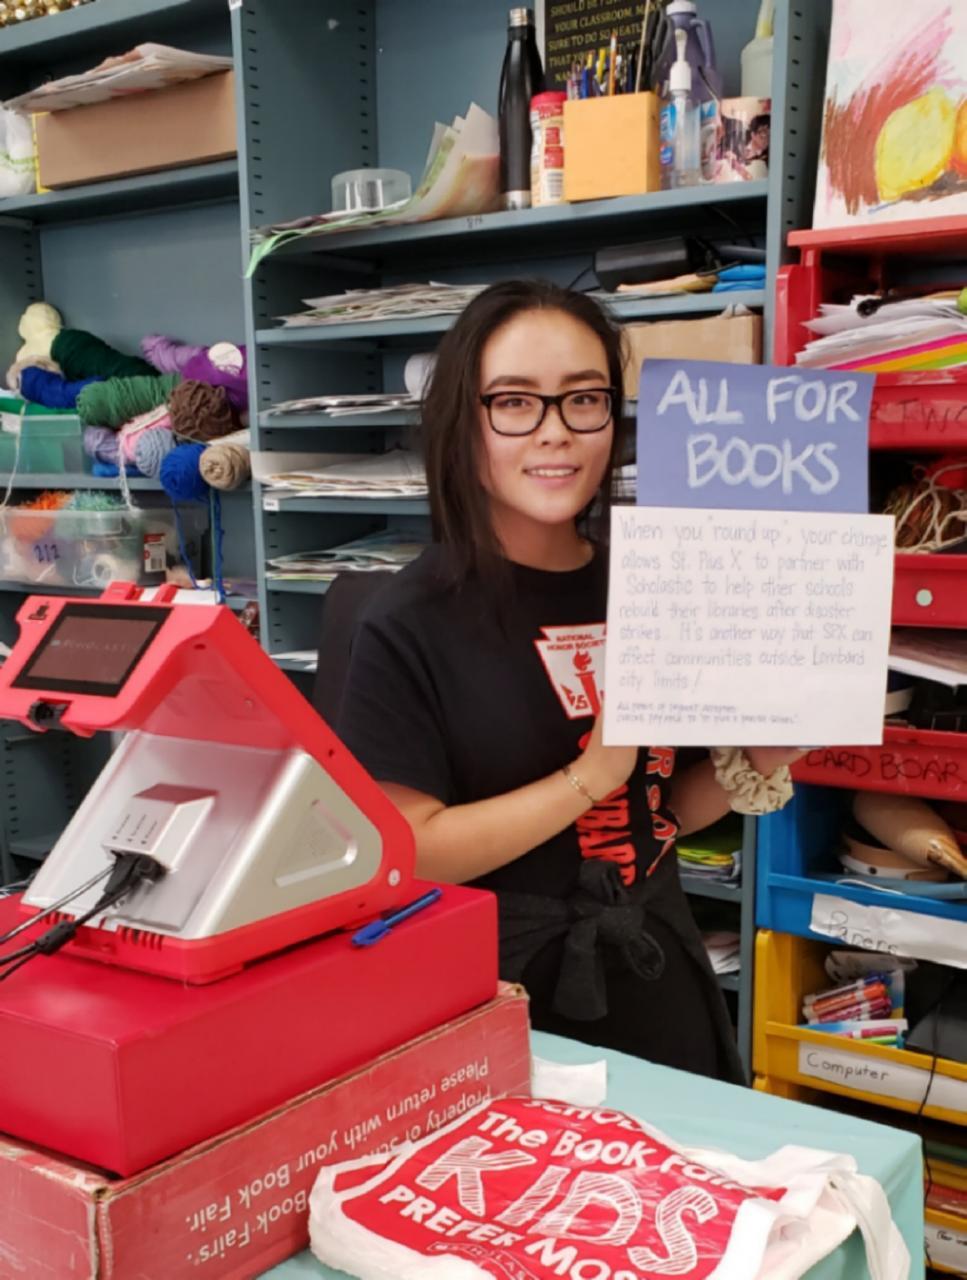 SHOULD BE
YOUR CLASSROOM, MAKE
SURE TO DO SO NEATLY
THAT YOU
ALL FOR
BOOKS
When you "round up", your change
allows St. Pius X to partner with
Scholastic to help other schools
rebuild their libraries after disaster
strikes. It's another way that SPX can
affect communities outside Lombard
city limits!
NATIONAL
HONOR SOCIETY
212
CARD BOAR
Papers
Computer
Property of
Book Fairs.
Please return with your Book Fair.
The Book Fair
KIDS
PREFER MOS